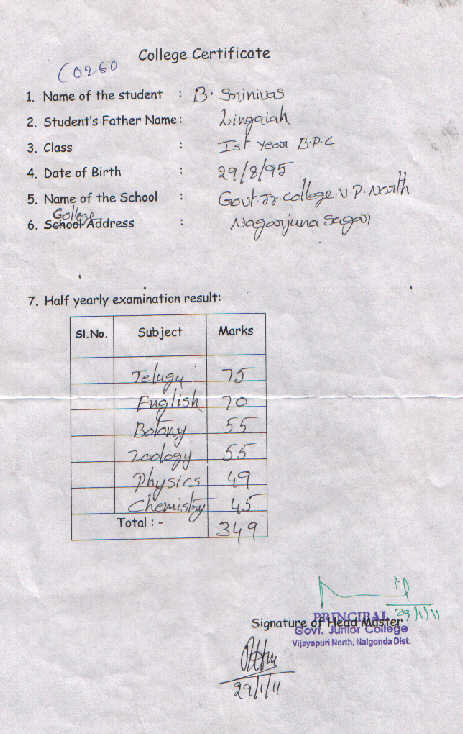 College Certificate
60260
1. Name of the student : B. Srinivas
2. Student's Father Name: Lingaiah
3. Class : Ist year B.P.C
4. Date of Birth : 29/8/95
5. Name of the School : Govt Jr college V.P. North
College
6. School Address : Nagarjuna Sagar
7. Half yearly examination result:
Sl.No. Subject Marks
Telugu 75
English 70
Botony 55
Zoology 55
Physics 49
Chemistry 45
Total : - 349
29/1/11
Signature of Head Master
PRINCIPAL
Govt. Junior College
Vijayapuri North, Nalgonda Dist.
29/1/11